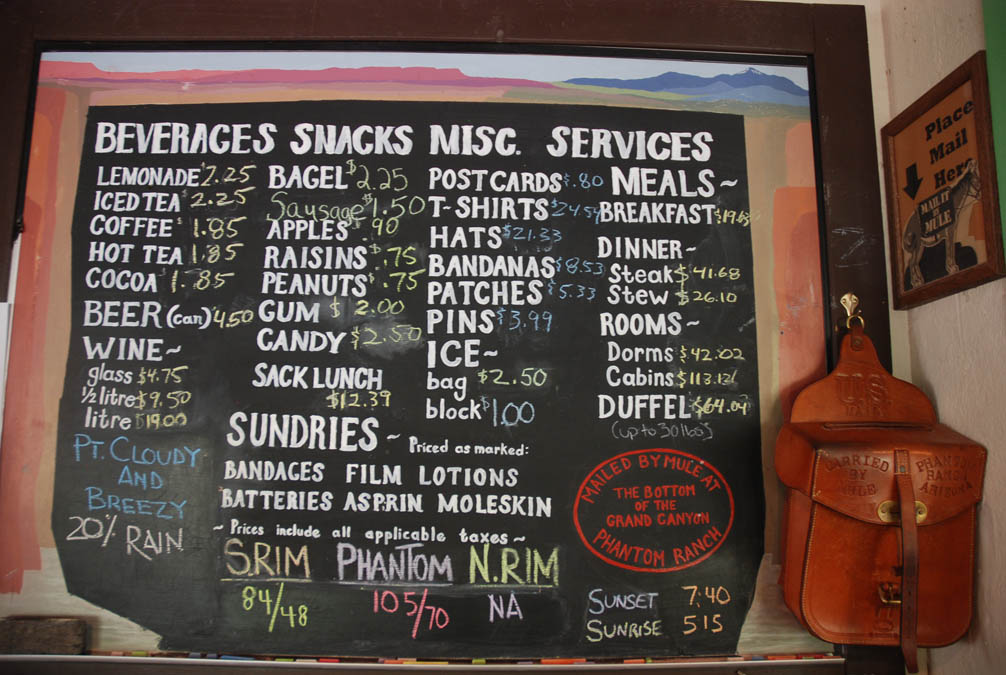 BEVERAGES
LEMONADE $2.25
ICED TEA $2.25
COFFEE $1.85
HOT TEA 1.85
COCOA $1.85
BEER (can) 4.50
WINE~
glass $4.75
½ litre $9.50
litre $19.00
PT. CLOUDY
AND
BREEZY
20% RAIN
SNACKS
BAGEL $2.25
Sausage $1.50
APPLES $.90
RAISINS $.75
PEANUTS $.75
GUM $2.00
CANDY $2.50
SACK LUNCH
$12.39
MISC.
POSTCARDS $.80
T-SHIRTS $24.54
HATS $21.33
BANDANAS $8.53
PATCHES $5.33
PINS $3.99
ICE~
bag $2.50
block $1.00
SERVICES
MEALS~
BREAKFAST
DINNER~
Steak $41.68
Stew $26.10
ROOMS~
Dorms $42.02
Cabins
DUFFEL $64.04
(up to 30 lbs)
SUNDRIES ~ Priced as marked:
BANDAGES FILM LOTIONS
BATTERIES ASPRIN MOLESKIN
~Prices include all applicable taxes~
S.RIM PHANTOM N.RIM
84/48 105/70 NA
MAILED BY MULE AT
THE BOTTOM
OF THE
GRAND CANYON
PHANTOM RANCH
SUNSET 7:40
SUNRISE 515
Place
Mail
Here
MAIL IT
BY
MULE
U.S.
MAIL
CARRIED
BY
MULE
PHANTOM
RANCH
ARIZONA
US